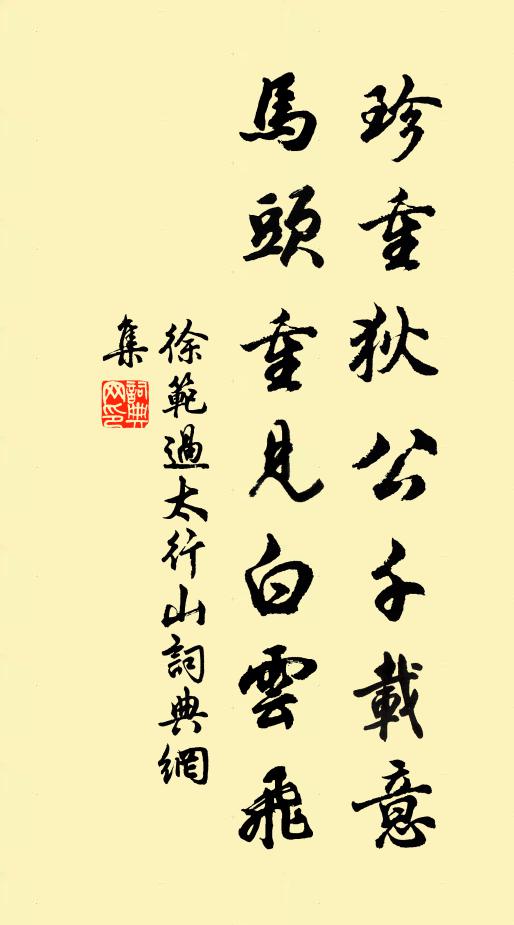 珍重狄公千載意
馬頭重見白雲飛
徐範過太行山詞典網
集
詞典網印